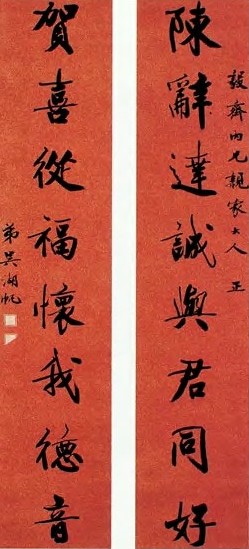 陳辭達誠與君同好
毅齋內兄親家大人正
賀喜從福懷我德音
弟吳湖帆